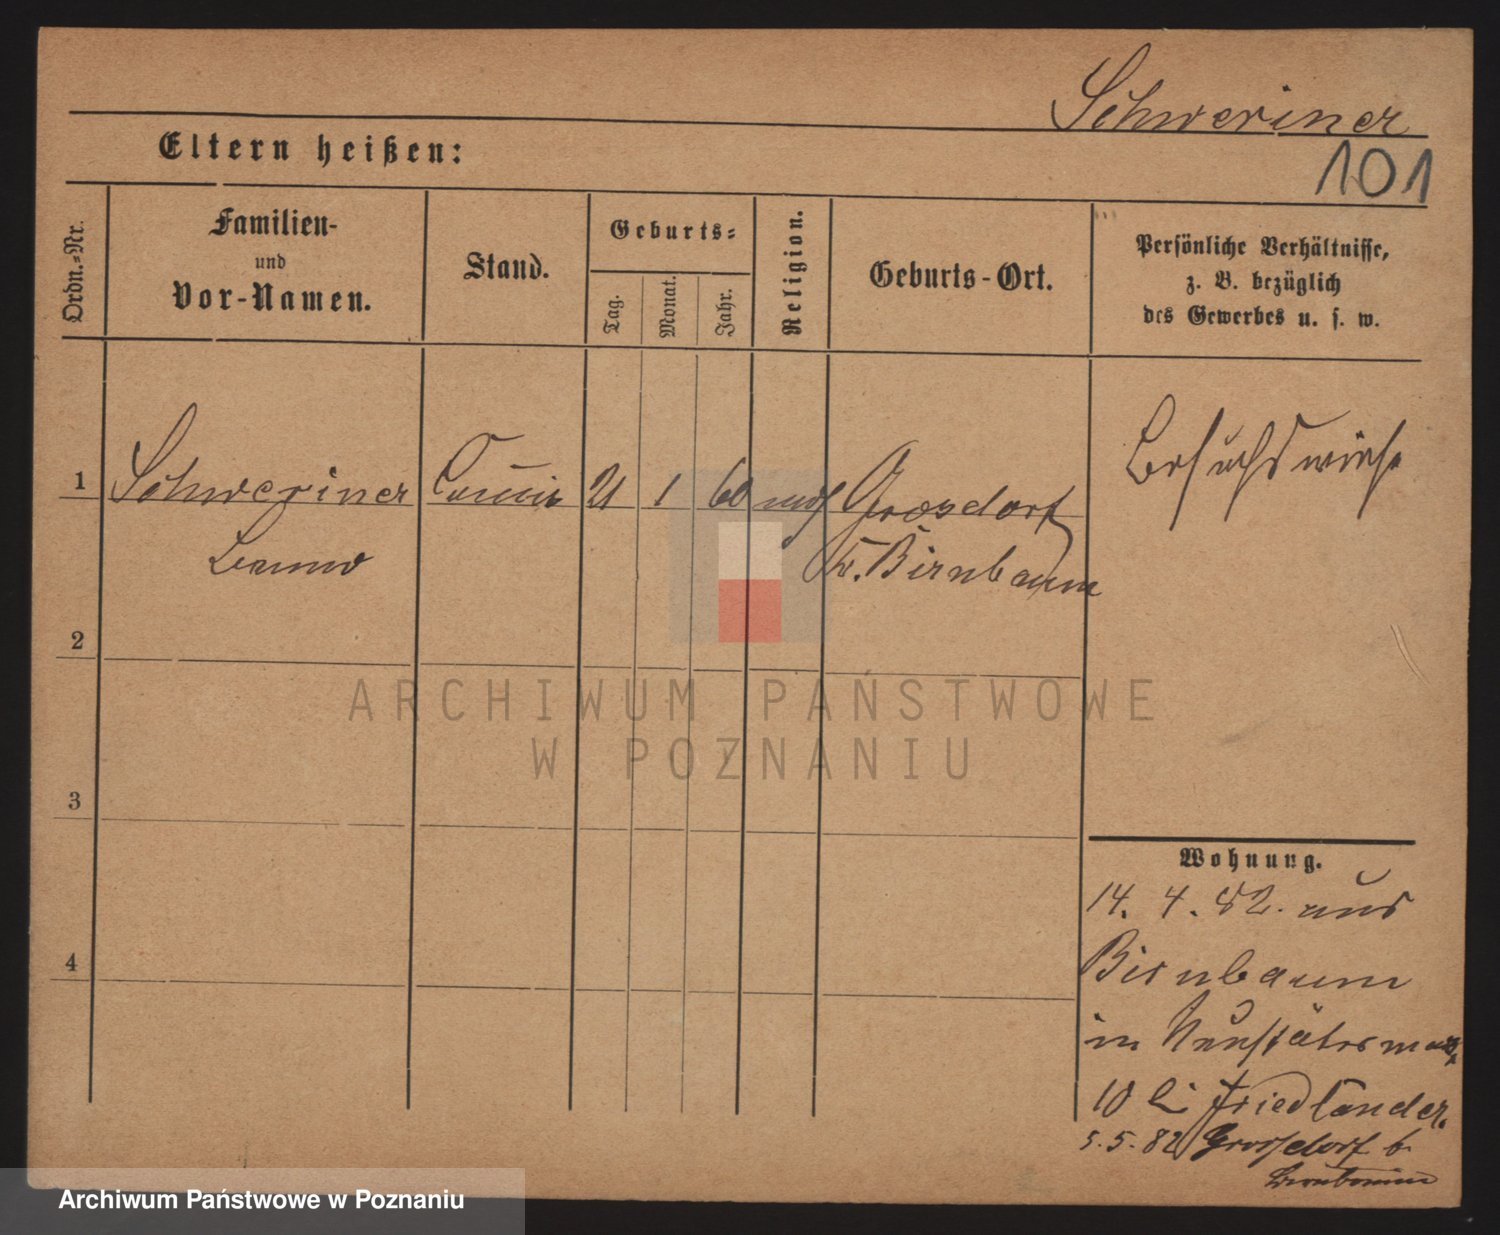 Schweriner
101
Eltern heißen:
Ordn.-Nr.
Familien-
und
Vor-Namen.
Stand.
Geburts-
Tag.
Monat.
Jahr.
Religion.
Geburts-Ort.
Persönliche Verhältnisse,
z. B. bezüglich
des Gewerbes u. s. w.
1
Schweriner
21
1
60
mos
Grosdorf
Kr. Birnbaum
Besuchsweise
2
ARCHIWUM PAŃSTWOWE
W POZNANIU
3
4
Wohnung.
14. 4. 82. aus
Birnbaum
in
10 bei Friedländer.
5. 5. 82 Grossdorf b
Birnbaum
Archiwum Państwowe w Poznaniu